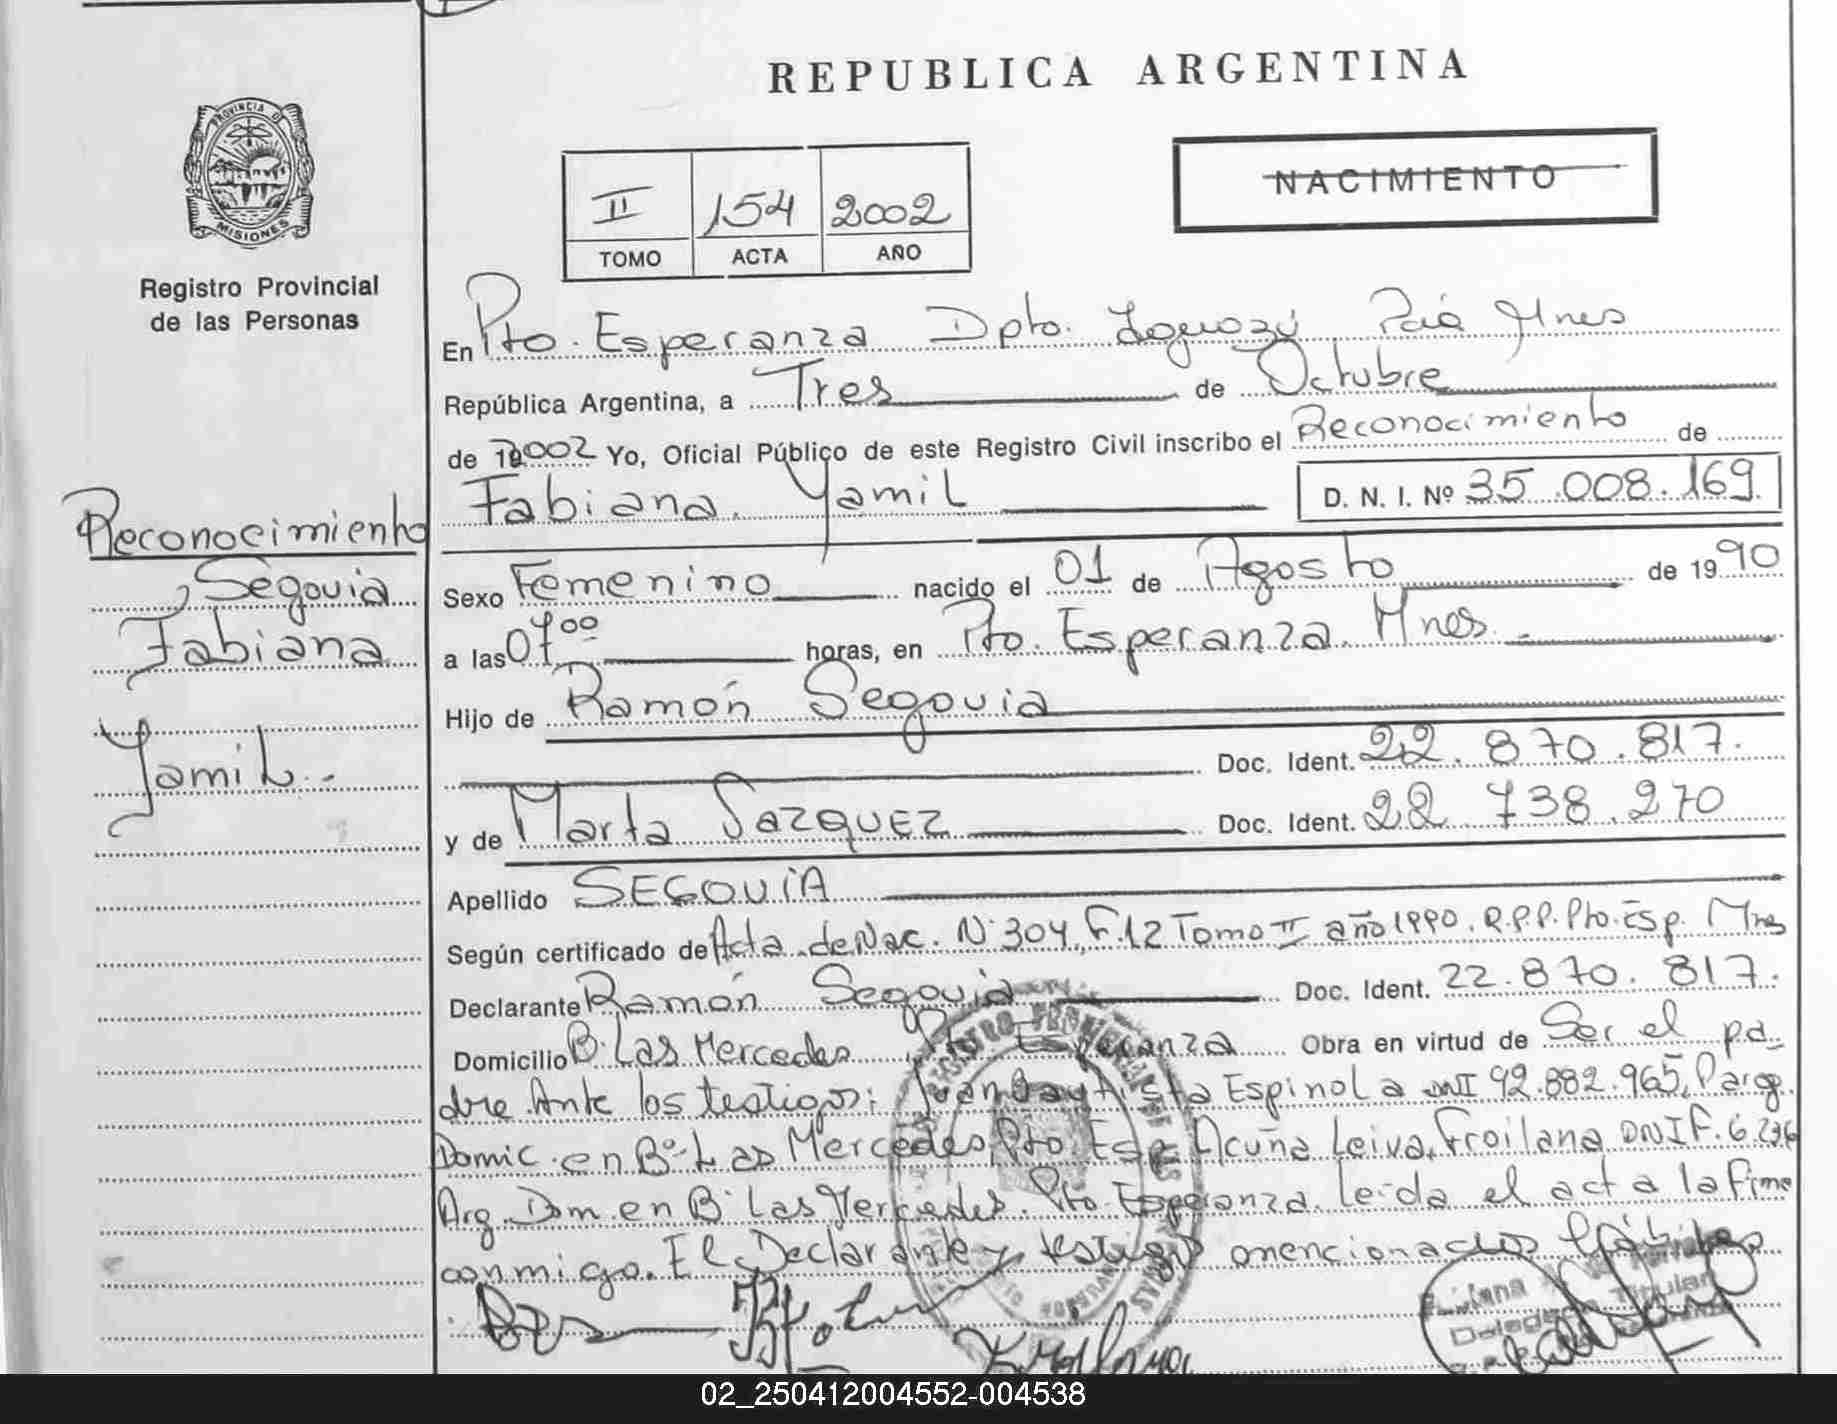 REPUBLICA ARGENTINA
PROVINCIA D
MISIONES
Registro Provincial
de las Personas
II 154 2002
TOMO ACTA AÑO
NACIMIENTO
En Pto. Esperanza Dpto. Iguazú Mnes
República Argentina, a Tres de Octubre
de 2002 Yo, Oficial Público de este Registro Civil inscribo el Reconocimiento de
Fabiana Yamil D. N. I. Nº 35.008.169
Reconocimiento
Segovia
Fabiana
Yamil.-
Sexo Femenino nacido el 01 de Agosto de 1990
a las 07⁰⁰ horas, en Pto. Esperanza. Mnes.
Hijo de Ramón Segovia
Doc. Ident. 22.870.817.
y de Marta Doc. Ident. 22.738.270
Apellido SEGOVIA
Según certificado de Acta de Nac. Nº 304, F.12 Tomo II año 1990. R.P.P. Pto. Esp. Mnes
Declarante Ramón Segovia Doc. Ident. 22.870.817.
Domicilio B. Las Mercedes Pto Esperanza Obra en virtud de Ser el pa-
dre. Ante los testigos: Juan Bautista Espinola DNI 92.882.965, Parag.
Domic. en Bº Las Mercedes, Pto. Esp. Acuña Leiva, Froilana, DNI F. 6.236
Arg. Dom. en B. Las Mercedes. Pto. Esperanza. Leida el acta la firma
conmigo. El Declarante y testigos mencionados
REGISTRO PROVINCIAL DE
Titular
02_250412004552-004538